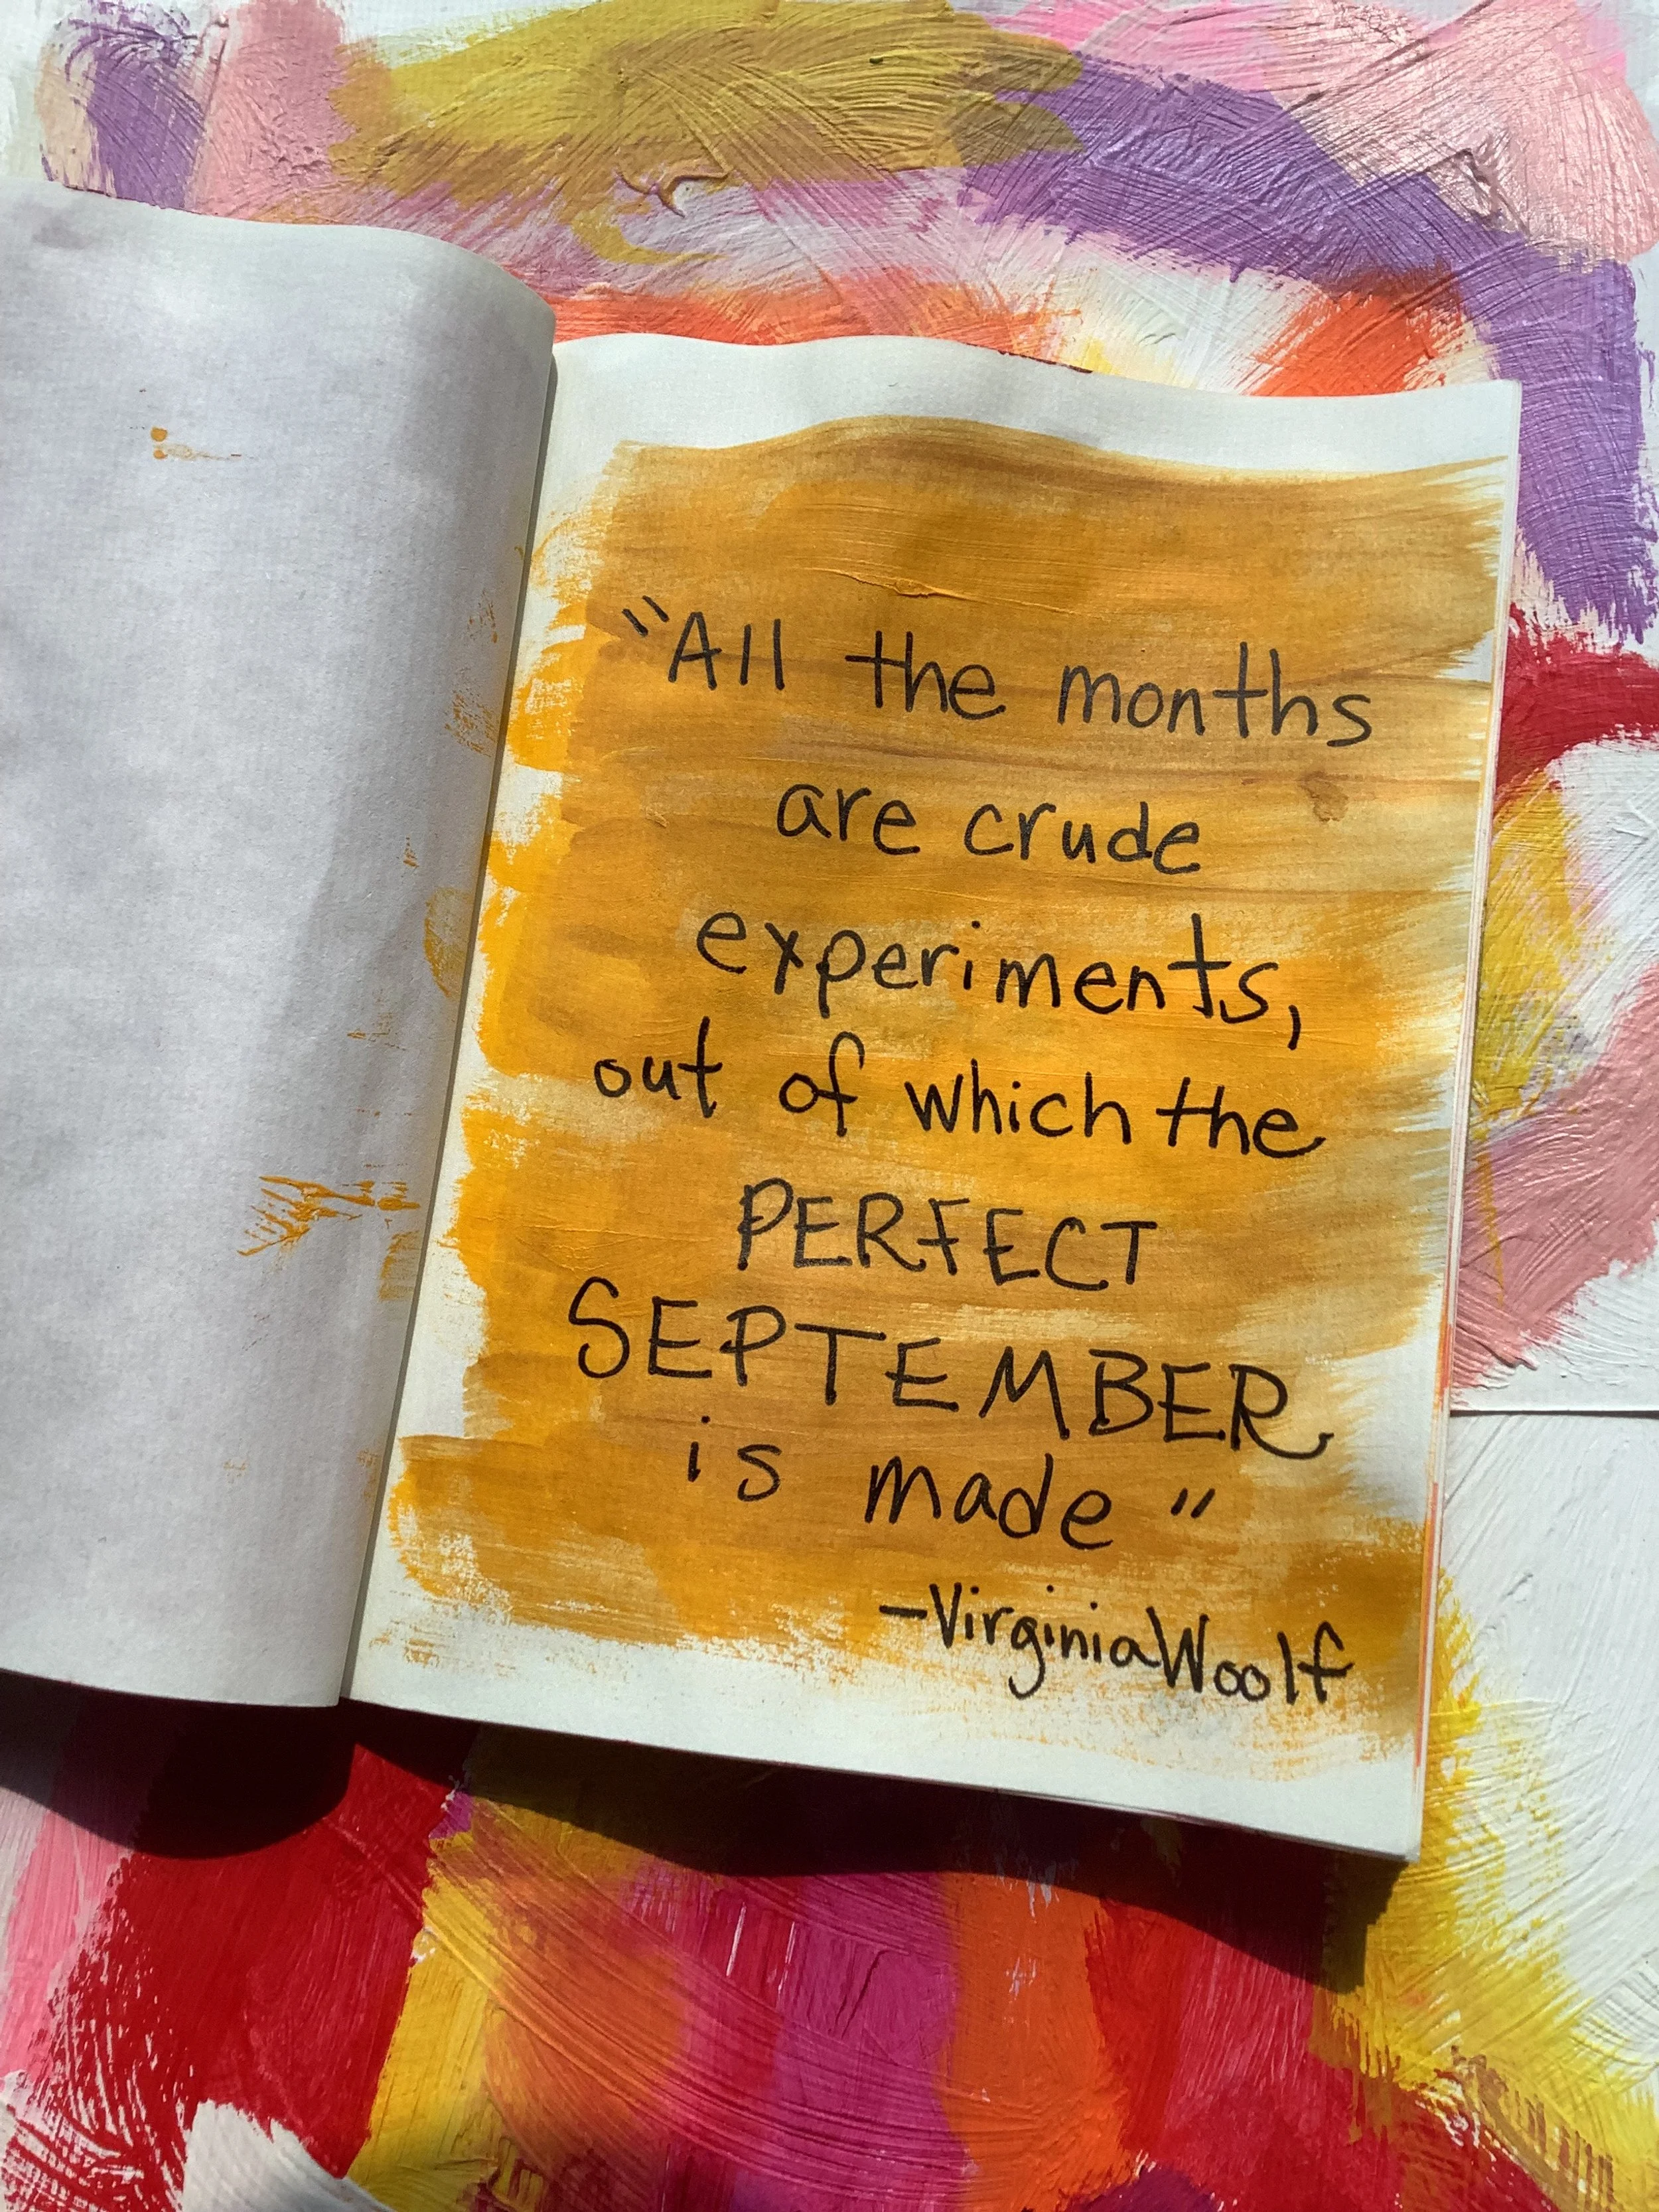 "All the months
are crude
experiments,
out of which the
PERFECT
SEPTEMBER
is made"
-Virginia Woolf